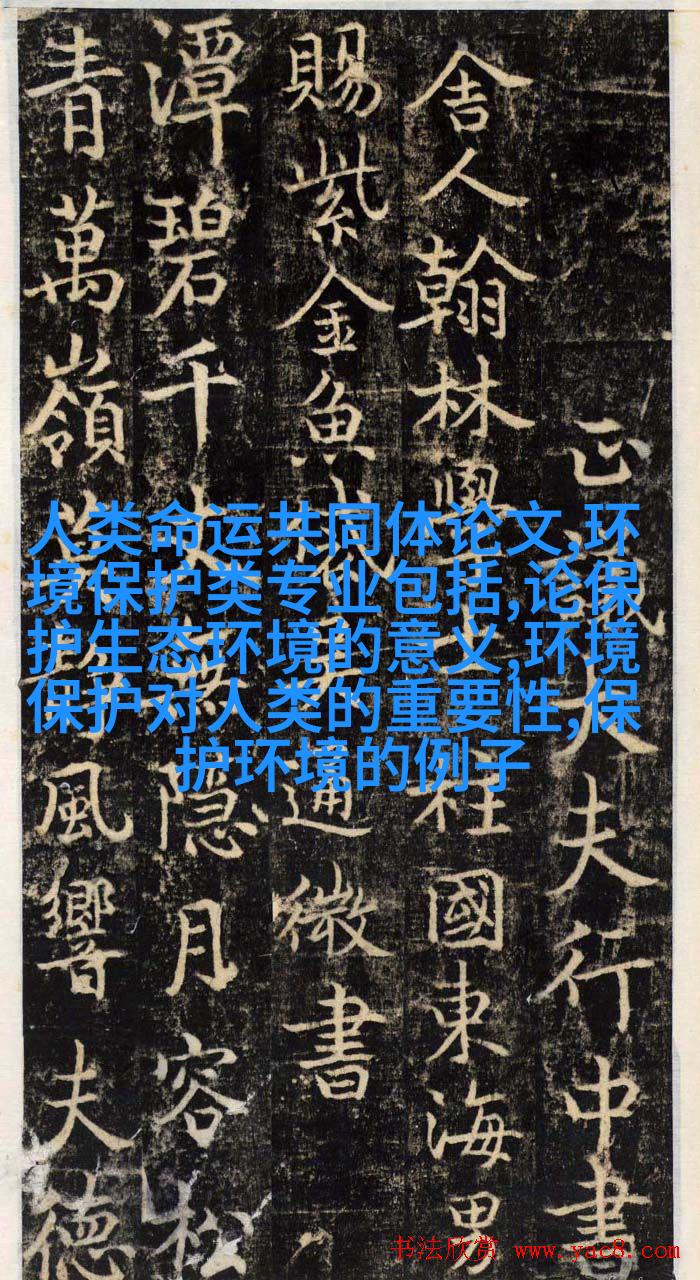 正議大夫行中書
舍人翰林學士上柱國東海男
賜紫金魚袋吳通微書
潭碧千丈無隱月容松
青萬嶺風響夫德
人类命运共同体论文,环
境保护类专业包括,论保
护生态环境的意义,环境
保护对人类的重要性,保
护环境的例子
书法欣赏 www.yac8.com